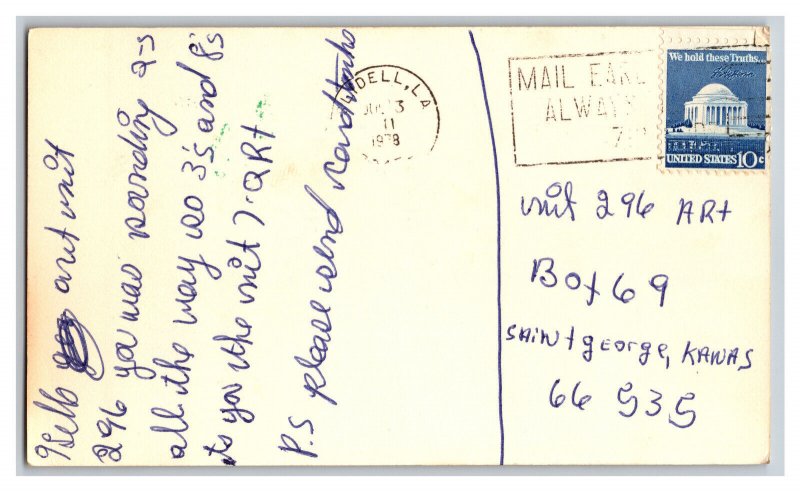 Hello art unit
296 you was sounding 2-3
all the way too 3's and 8's
to you the unit 7-ART
P.S please send card thanks
SLIDELL, LA
1978
MAIL EARL
ALWAYS
We hold these Truths...
UNITED STATES 10c
unit 296 ART
Box 69
SAINt george, KANAS
66535